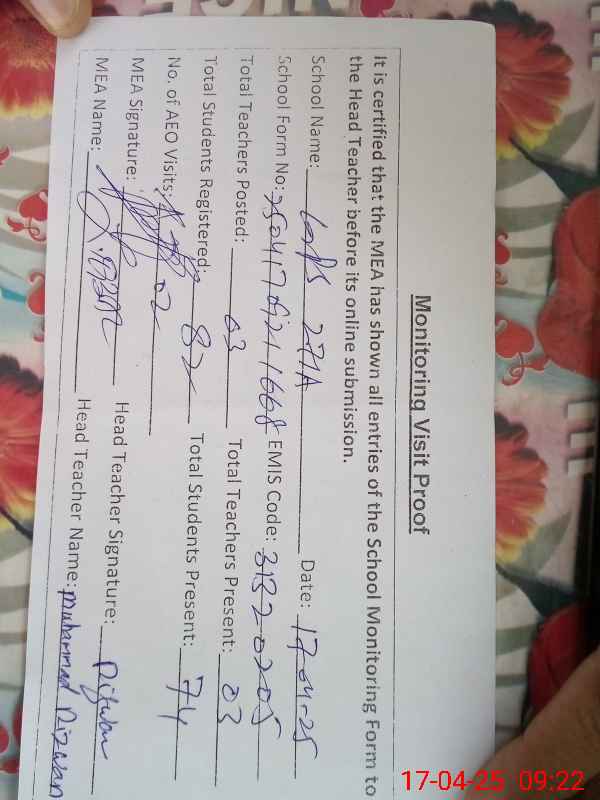 Monitoring Visit Proof
It is certified that the MEA has shown all entries of the School Monitoring Form to
the Head Teacher before its online submission.
School Name: GPS 27/1A Date: 17-04-25
School Form No: EMIS Code: 31320205
Total Teachers Posted: 03 Total Teachers Present: 03
Total Students Registered: 82 Total Students Present: 74
No. of AEO Visits: 02
MEA Signature: Head Teacher Signature: Rizwan
MEA Name: Head Teacher Name: Muhammad Rizwan
17-04-25 09:22